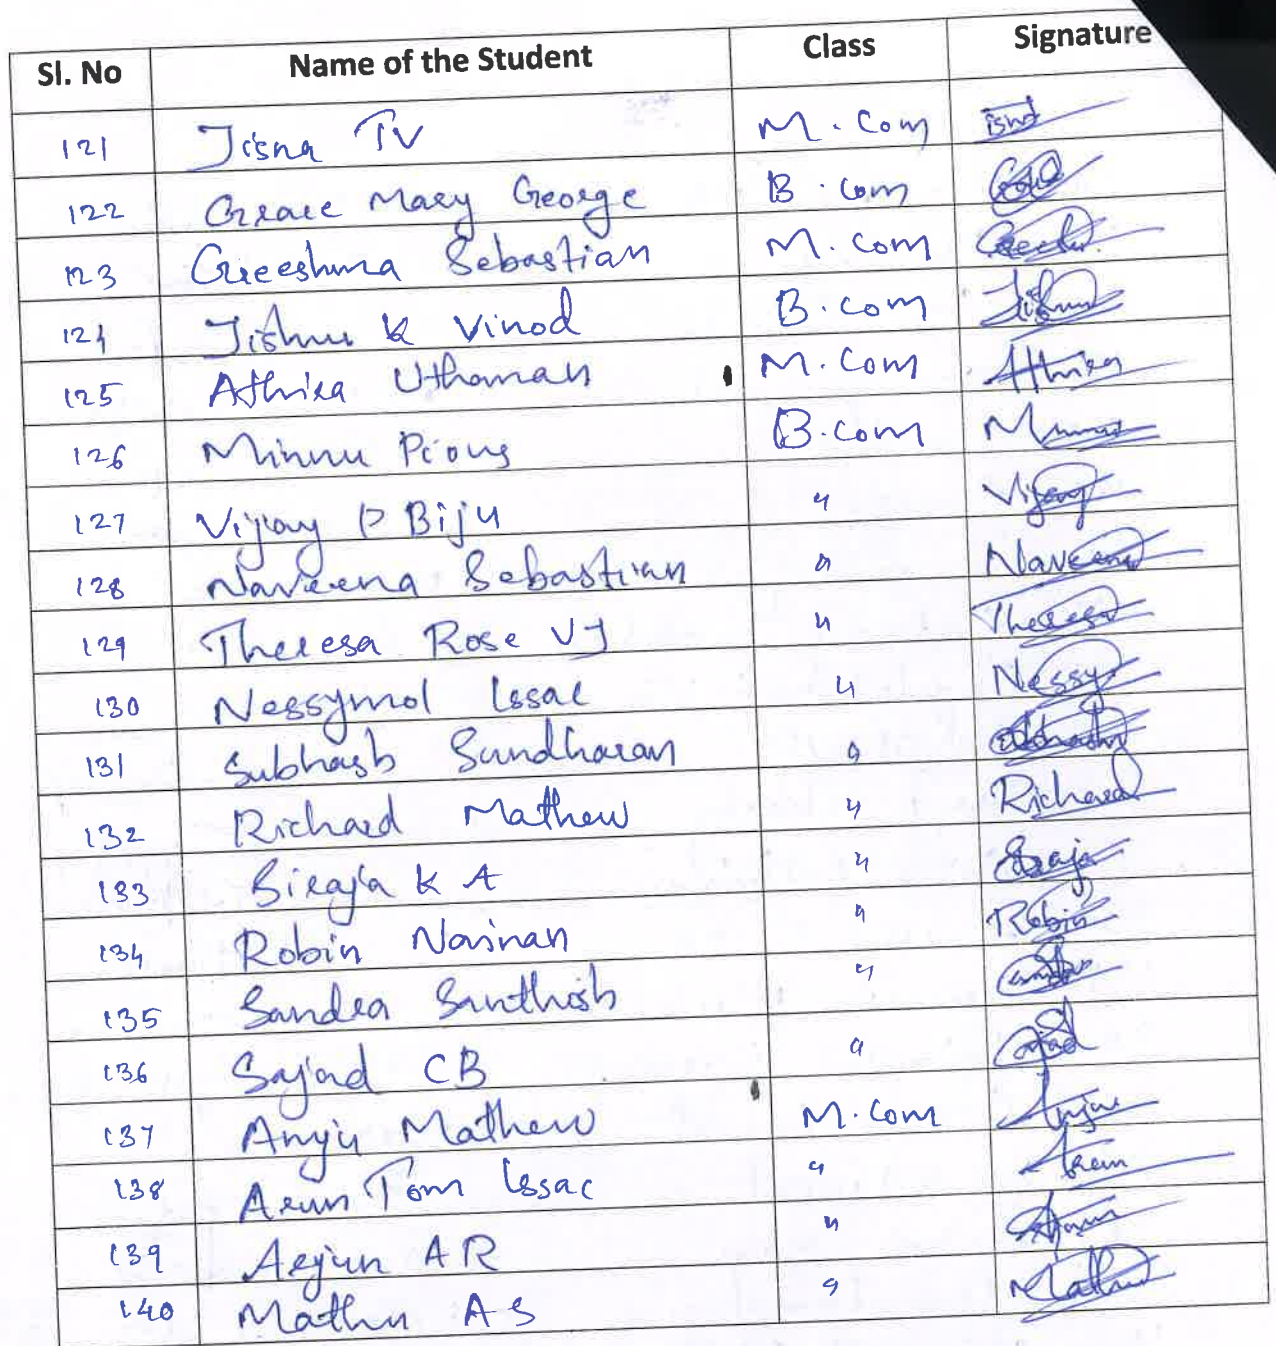 Sl. No Name of the Student Class Signature
121 Jisna TV M.Com
122 Grace Mary George B.Com
123 Greeshma Sebastian M.Com
124 Jishnu K Vinod B.Com Jishnu
125 Athira Uthaman M.Com Athira
126 Minnu Pious B.Com
127 Vijay P Biju " Vijay
128 Naveena Sebastian " Naveena
129 Theresa Rose VJ " Theresa
130 Nessymol Issac " Nessy
131 Subhash Sundharan "
132 Richard Mathew " Richard
133 Biraja K A "
134 Robin Nainan " Robin
135 Sandra Santhosh "
136 Sajad CB "
137 Anju Mathew M.Com Anju
138 Arun Tom Issac " Arun
139 Arjun AR "
140 Mathu A S "